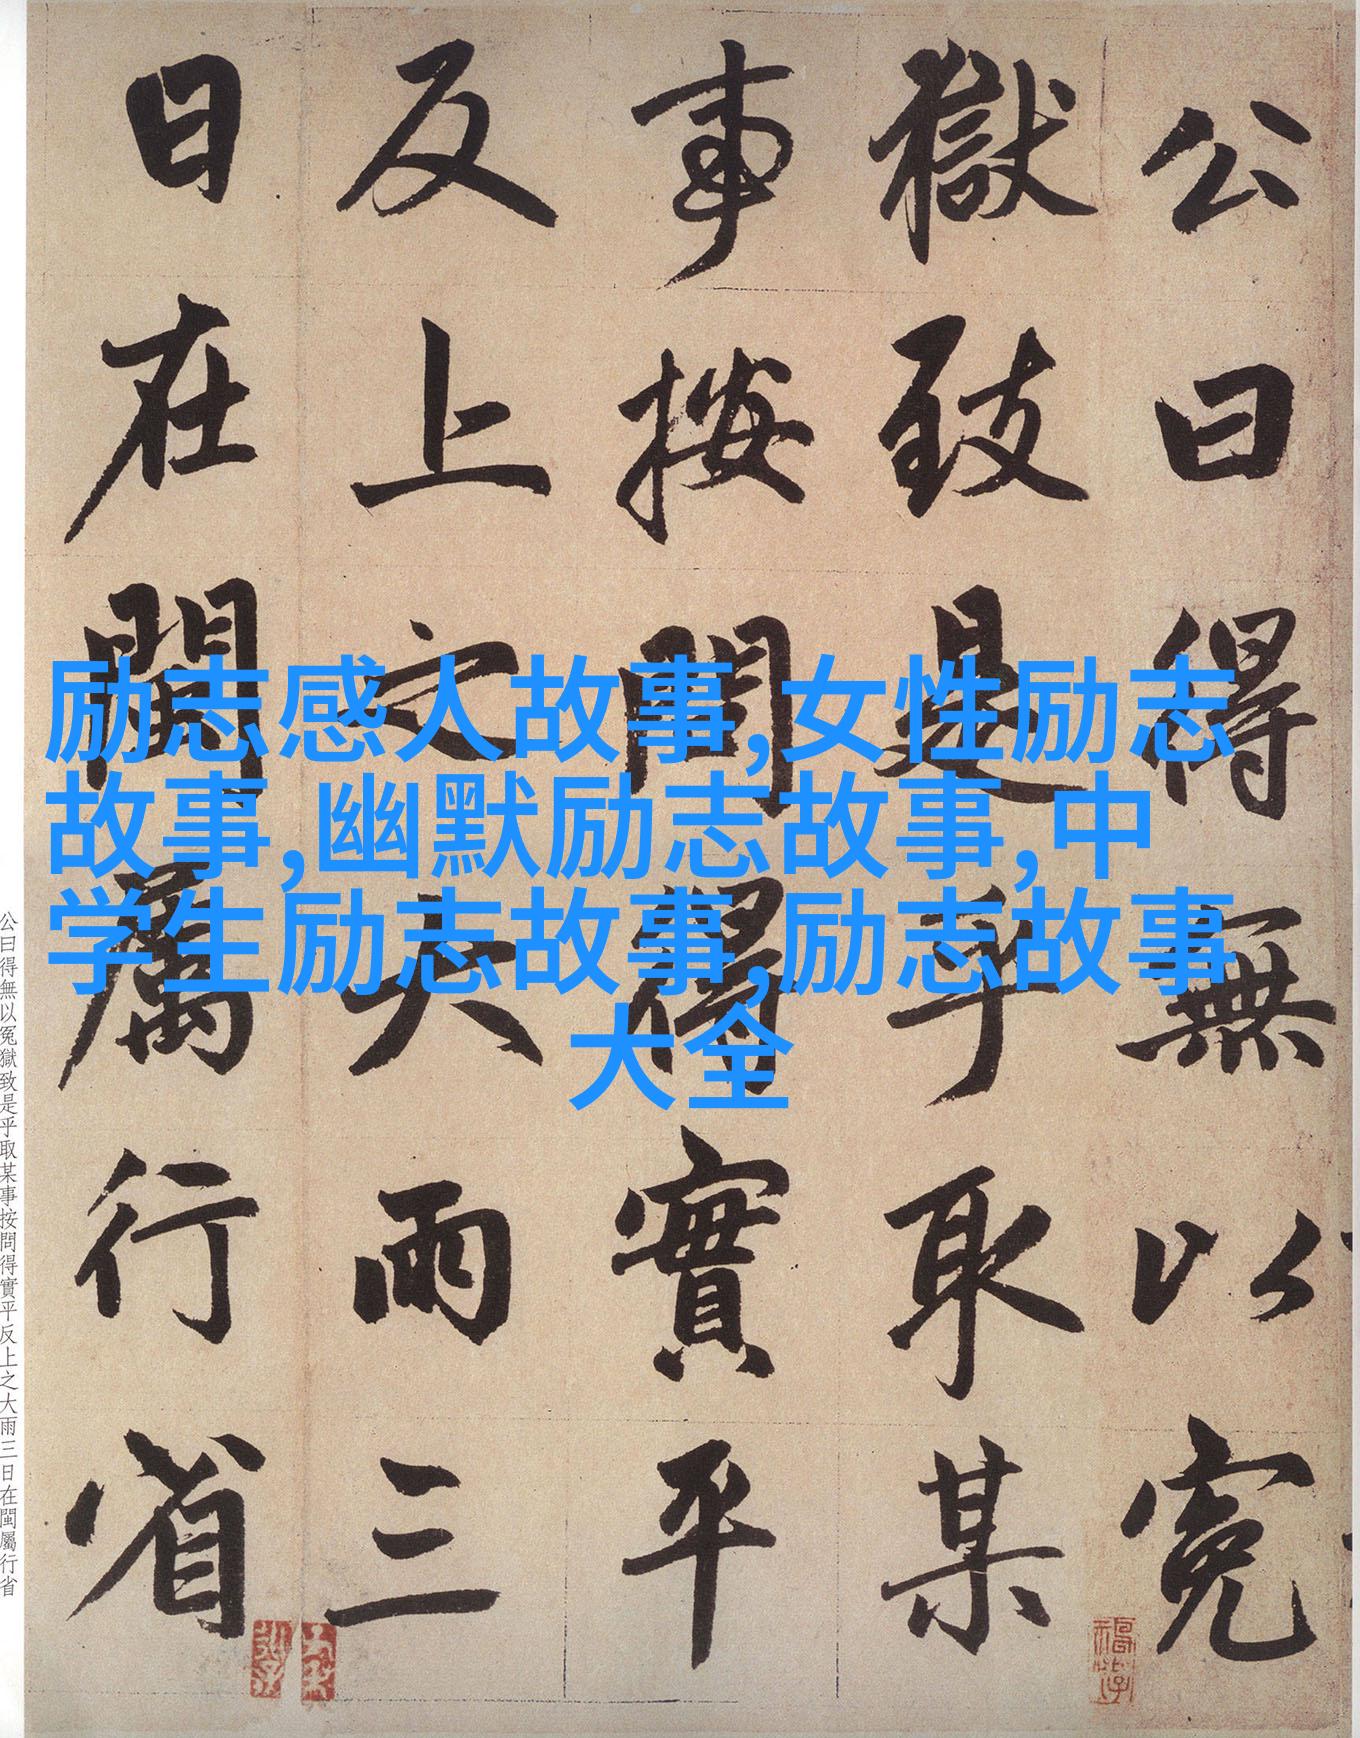 公曰得無以冤
獄致是乎取某
事按問得實平
反上之大雨三
日在閩屬行省
励志感人故事,女性励志
故事,幽默励志故事,中
学生励志故事,励志故事
大全
公曰得無以冤獄致是乎取某事按問得實平反上之大雨三日在閩屬行省